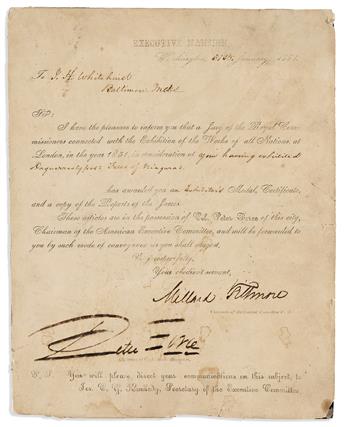 EXECUTIVE MANSION,
Washington, 31st January, 185
To J. H. Whitehurst
Baltimore Md
SIR:
I have the pleasure to inform you that a Jury of the Royal Com-
missioners connected with the Exhibition of the Works of all Nations, at
London, in the year 1851, in consideration of your having exhibited
Daguerreotypes Falls of Niagara
has awarded you an Exhibitor's Medal, Certificate,
and a copy of the Reports of the Juries.
These articles are in the possession of Col. Peter Force of this city,
Chairman of the American Executive Committee, and will be forwarded to
you by such mode of conveyance as you shall direct.
Very respectfully,
Your obedient servant,
Millard Fillmore
Peter Force
You will please, direct your communications on this subject, to
Jos. C. G. Kennedy, Secretary of the Executive Committee.